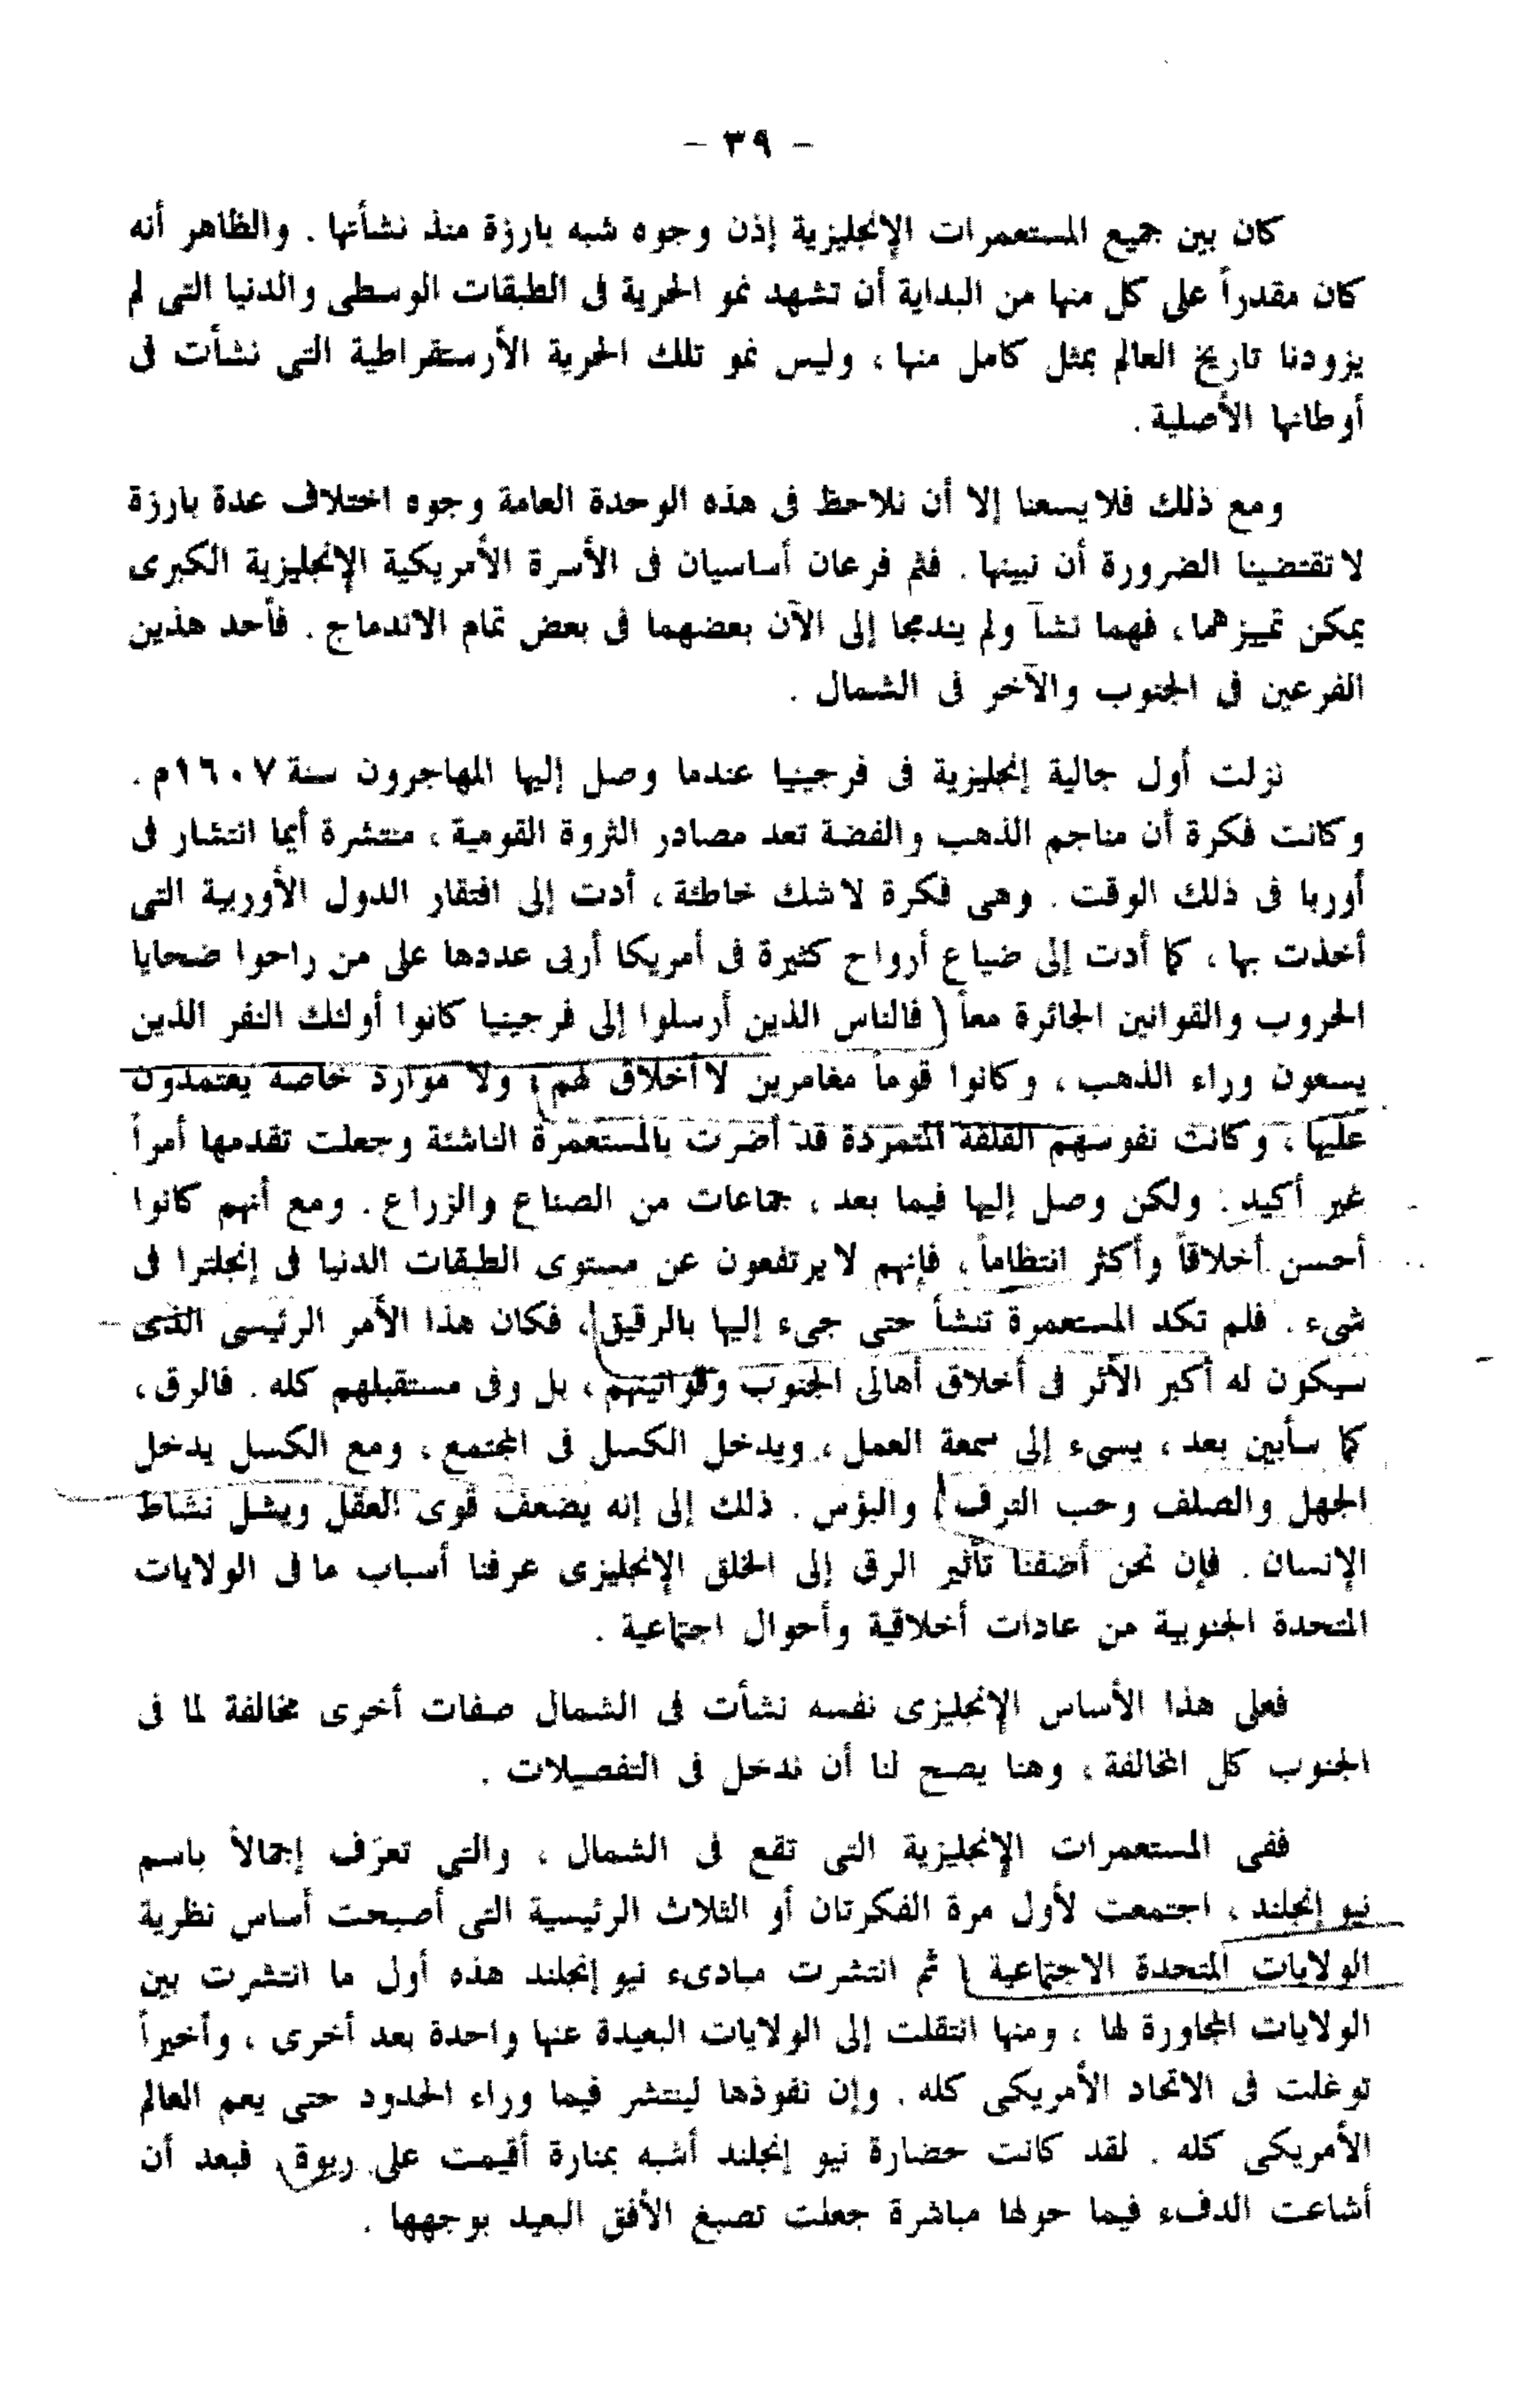 - ٣٩ -
كان بين جميع المستعمرات الإنجليزية إذن وجوه شبه بارزة منذ نشأتها . والظاهر أنه
كان مقدراً على كل منها من البداية أن تشهد نمو الحرية فى الطبقات الوسطى والدنيا التى لم
يزودنا تاريخ العالم بمثل كامل منها ، وليس نمو تلك الحرية الأرستقراطية التى نشأت فى
أوطانها الأصلية .
ومع ذلك فلا يسعنا إلا أن نلاحظ فى هذه الوحدة العامة وجوه اختلاف عدة بارزة
لا تقتضينا الضرورة أن نبينها . فثم فرعان أساسيان فى الأسرة الأمريكية الإنجليزية الكبرى
يمكن تمييزهما ، فهما نشآ ولم يندمجا إلى الآن بعضهما فى بعض تمام الاندماج . فأحد هذين
الفرعين فى الجنوب والآخر فى الشمال .
نزلت أول جالية إنجليزية فى فرجينيا عندما وصل إليها المهاجرون سنة ١٦٠٧م .
وكانت فكرة أن مناجم الذهب والفضة تعد مصادر الثروة القومية ، منتشرة أيما انتشار فى
أوربا فى ذلك الوقت . وهى فكرة لا شك خاطئة ، أدت إلى افتقار الدول الأوربية التى
أخذت بها ، كما أدت إلى ضياع أرواح كثيرة فى أمريكا أربى عددها على من راحوا ضحايا
الحروب والقوانين الجائرة معاً ( فالناس الذين أرسلوا إلى فرجينيا كانوا أولئك النفر الذين
يسعون وراء الذهب ، وكانوا قوماً مغامرين لا أخلاق لهم ، ولا موارد خاصة يعتمدون
عليها ، وكانت نفوسهم القلقة المتمردة قد أضرت بالمستعمرة الناشئة وجعلت تقدمها أمراً
غير أكيد . ولكن وصل إليها فيما بعد ، جماعات من الصناع والزراع . ومع أنهم كانوا
أحسن أخلاقاً وأكثر انتظاماً ، فإنهم لا يرتفعون عن مستوى الطبقات الدنيا فى إنجلترا فى
شىء . فلم تكد المستعمرة تنشأ حتى جىء إليها بالرقيق ، فكان هذا الأمر الرئيسى الذى
سيكون له أكبر الأثر فى أخلاق أهالى الجنوب وقوانينهم ، بل وفى مستقبلهم كله . فالرق ،
كما سأبين بعد ، يسىء إلى سمعة العمل ، ويدخل الكسل فى المجتمع ، ومع الكسل يدخل
الجهل والصلف وحب الترف ، والبؤس . ذلك إلى إنه يضعف قوى العقل ويشل نشاط
الإنسان . فإن نحن أضفنا تأثير الرق إلى الخلق الإنجليزى عرفنا أسباب ما فى الولايات
المتحدة الجنوبية من عادات أخلاقية وأحوال اجتماعية .
فعلى هذا الأساس الإنجليزى نفسه نشأت فى الشمال صفات أخرى مخالفة لما فى
الجنوب كل المخالفة ، وهنا يصح لنا أن ندخل فى التفصيلات .
ففى المستعمرات الإنجليزية التى تقع فى الشمال ، والتى تعرف إجمالاً باسم
نيو إنجلند ، اجتمعت لأول مرة الفكرتان أو الثلاث الرئيسية التى أصبحت أساس نظرية
الولايات المتحدة الاجتماعية ) ثم انتشرت مبادىء نيو إنجلند هذه أول ما انتشرت بين
الولايات المجاورة لها ، ومنها انتقلت إلى الولايات البعيدة عنها واحدة بعد أخرى ، وأخيراً
توغلت فى الاتحاد الأمريكى كله . وإن نفوذها لينتشر فيما وراء الحدود حتى يعم العالم
الأمريكى كله . لقد كانت حضارة نيو إنجلند أشبه بمنارة أقيمت على ربوة ، فبعد أن
أشاعت الدفء فيما حولها مباشرة جعلت تصبغ الأفق البعيد بوجهها .